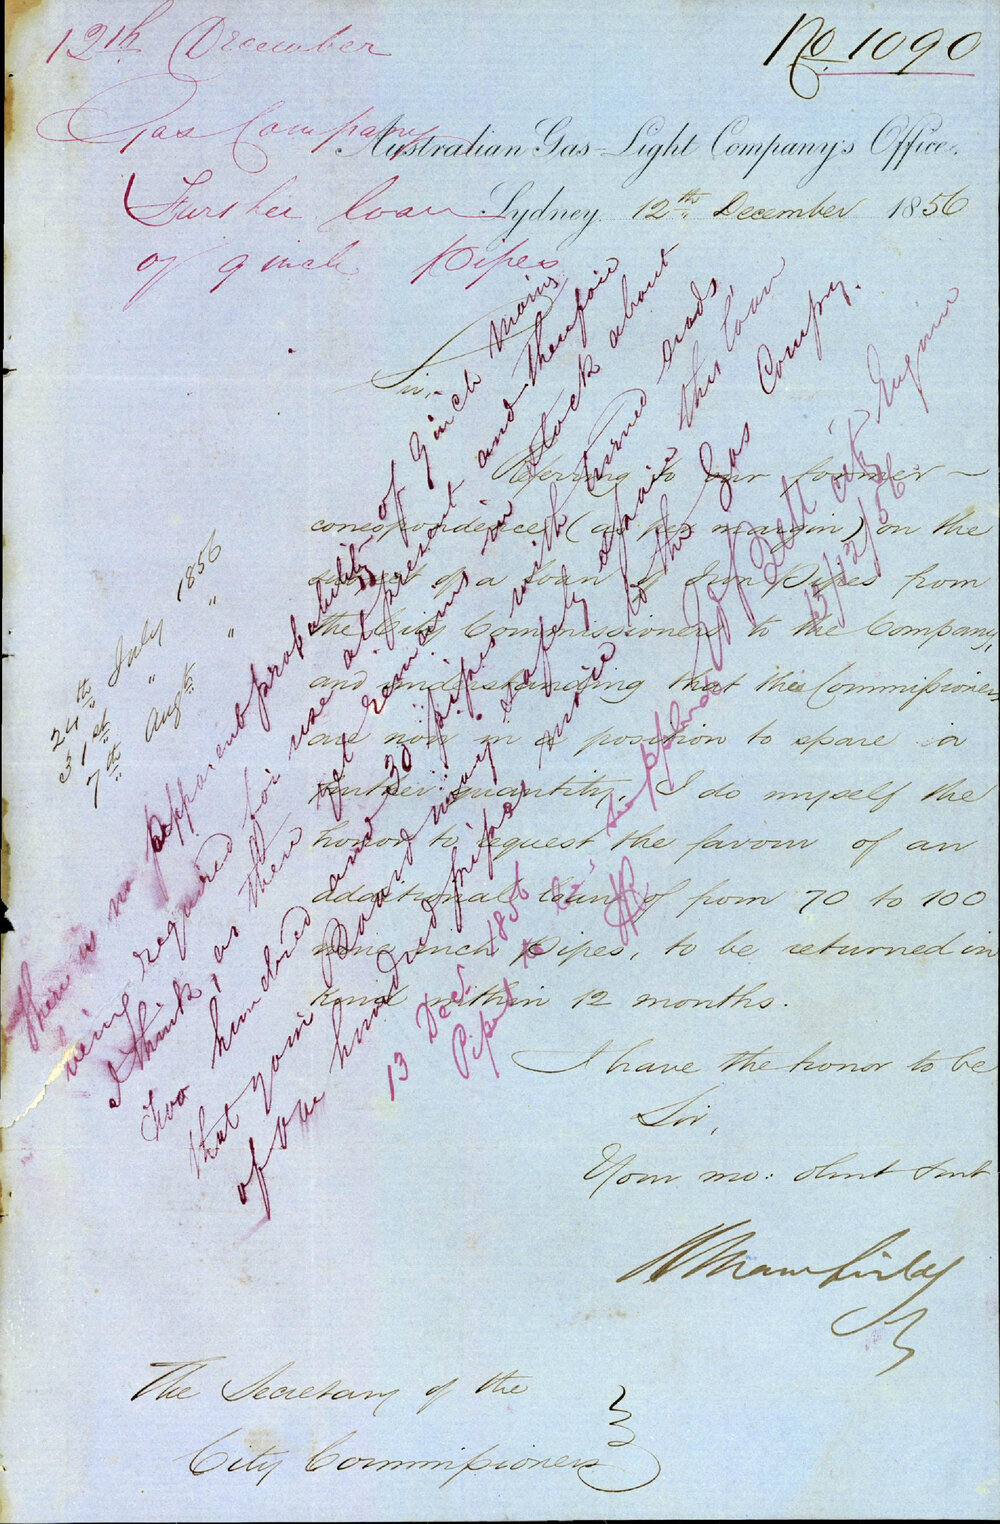 12th December
No. 1090
Gas Company
Australian Gas-Light Company's Office.
Further loan
of 9 inch Pipes
Sydney 12th December 1856
Sir,
Referring to our former
correspondence (as per margin) on the
24th July 1856
31st " "
7th Augt. "
subject of a loan of Iron Pipes from
the City Commissioners to the Company,
and understanding that the Commissioners
are now in a position to spare a
further quantity, I do myself the
honor to request the favour of an
additional loan of from 70 to 100
nine inch Pipes, to be returned in
kind within 12 months.
I have the honor to be
Sir,
Your mo: obnt Servt
The Secretary of the
City Commissioners
There is no apparent probability of 9 inch mains
being required for use at present and therefore
I think, as there yet remains in Stock about
two hundred and 30 pipes with turned ends,
that your Board may safely afford this loan
of one hundred pipes more to the Gas Compny.
City Engineer
15/12/56
13 Decr. 1856